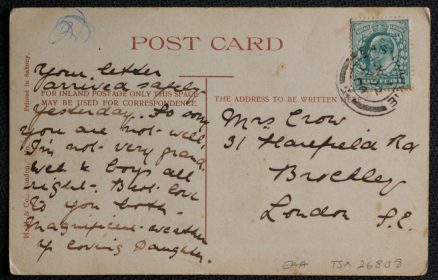 POST CARD
Printed in Saxony.
FOR INLAND POSTAGE ONLY THIS SPACE
MAY BE USED FOR CORRESPONDENCE.
THE ADDRESS TO BE WRITTEN HERE
Your letter
arrived safely
yesterday. So sorry
you are not well,
I'm not very grand.
Wet & boys all
right. Best love
to you both.
Magnificent weather
Y loving Daughter.
Mrs Crow
31 Harefield Rd
Brockley
London S.E.
& Co., London.
EAA TSX 26808